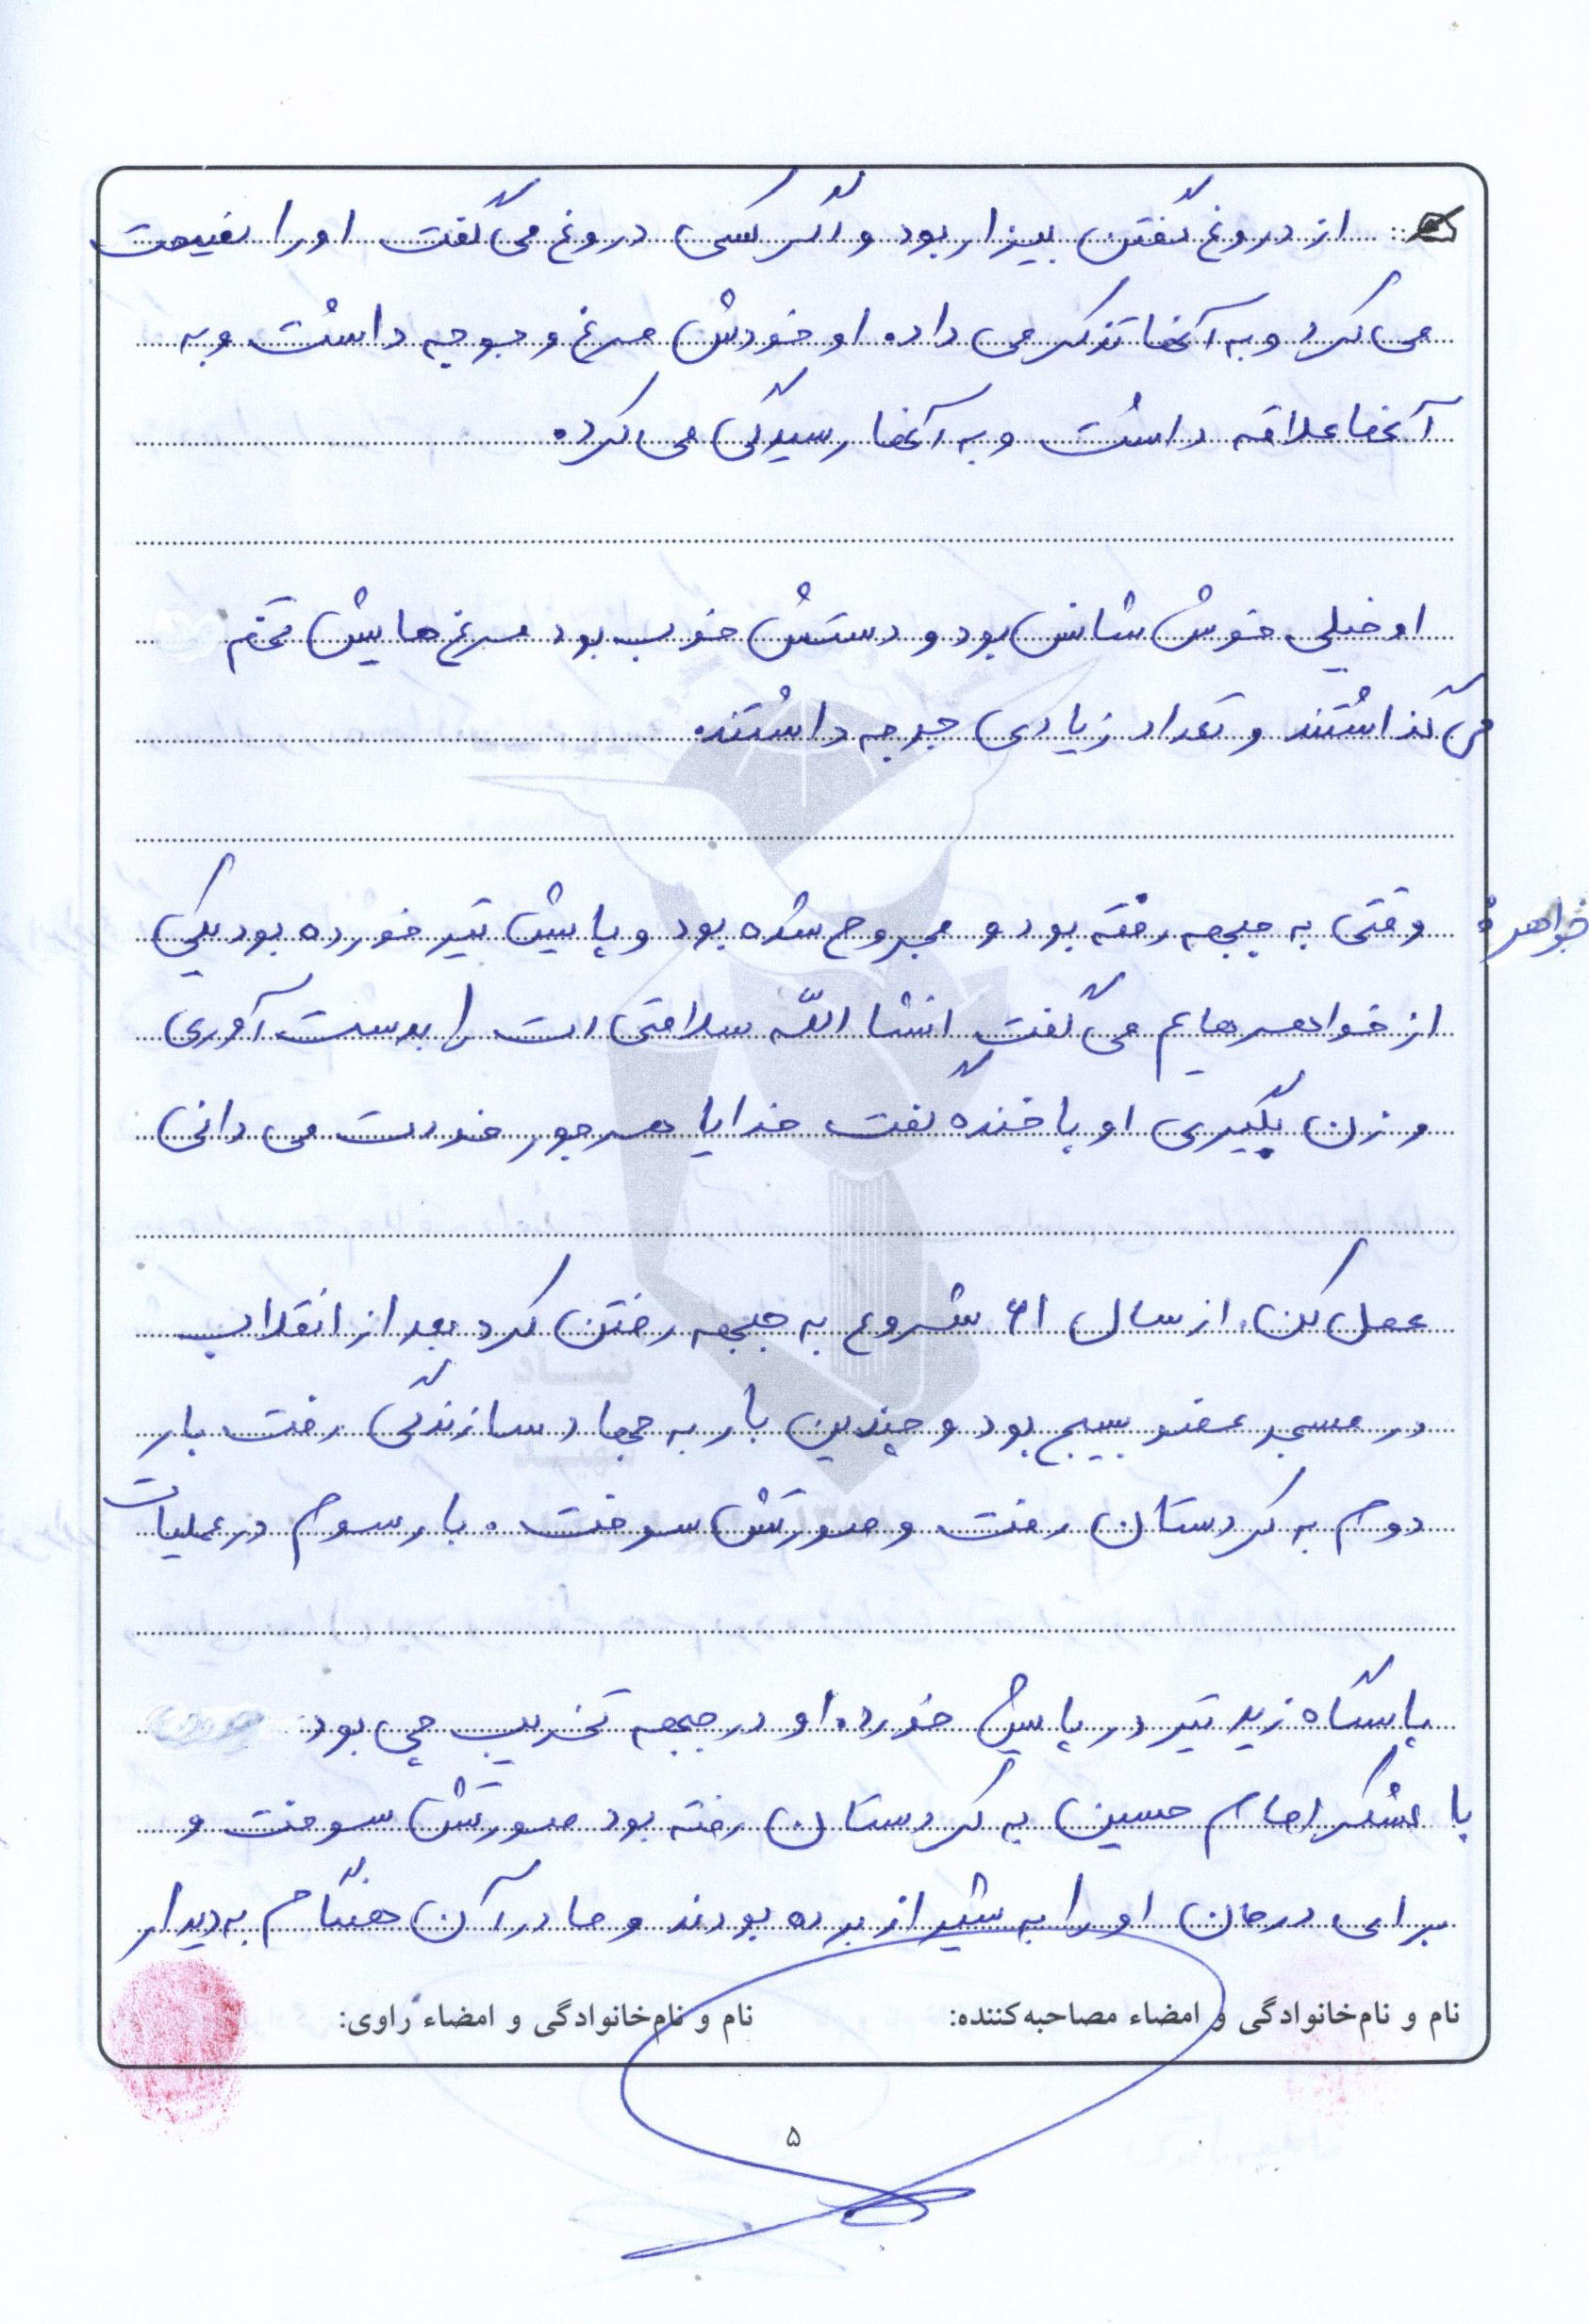 از دروغ گفتن بیزار بود و اگر کسی دروغ می گفت او را نصیحت
می کرد و به آنها تذکر می داد. او خودش مرغ و جوجه داشت و به
آنها علاقه داشت و به آنها رسیدگی می کرد.
او خیلی خوش شانس بود و دستش خوب بود مرغ هایش تخم
می گذاشتند و تعداد زیادی جوجه داشتند.
خواهر:
وقتی به جبهه رفته بود و مجروح شده بود و پایش تیر خورده بود یکی
از خواهرهایم می گفت انشا الله سلامتی ات را بدست آوری
و زن بگیری او با خنده گفت خدایا هر جور خودت می دانی
عمل کن. از سال ۶۱ شروع به جبهه رفتن کرد بعد از انقلاب
در مسجد عضو بسیج بود و چندین بار به جهاد سازندگی رفت بار
دوم به کردستان رفت و صورتش سوخت. بار سوم در عملیات
پاسگاه زید تیر در پایش خورد. او در جبهه تخریب چی بود
با لشکر امام حسین به کردستان رفته بود صورتش سوخت و
برای درمان او را به شیراز برده بودند و ما در آن هنگام به دیدار
نام و نام‌خانوادگی و امضاء مصاحبه‌کننده: نام و نام‌خانوادگی و امضاء راوی:
۵